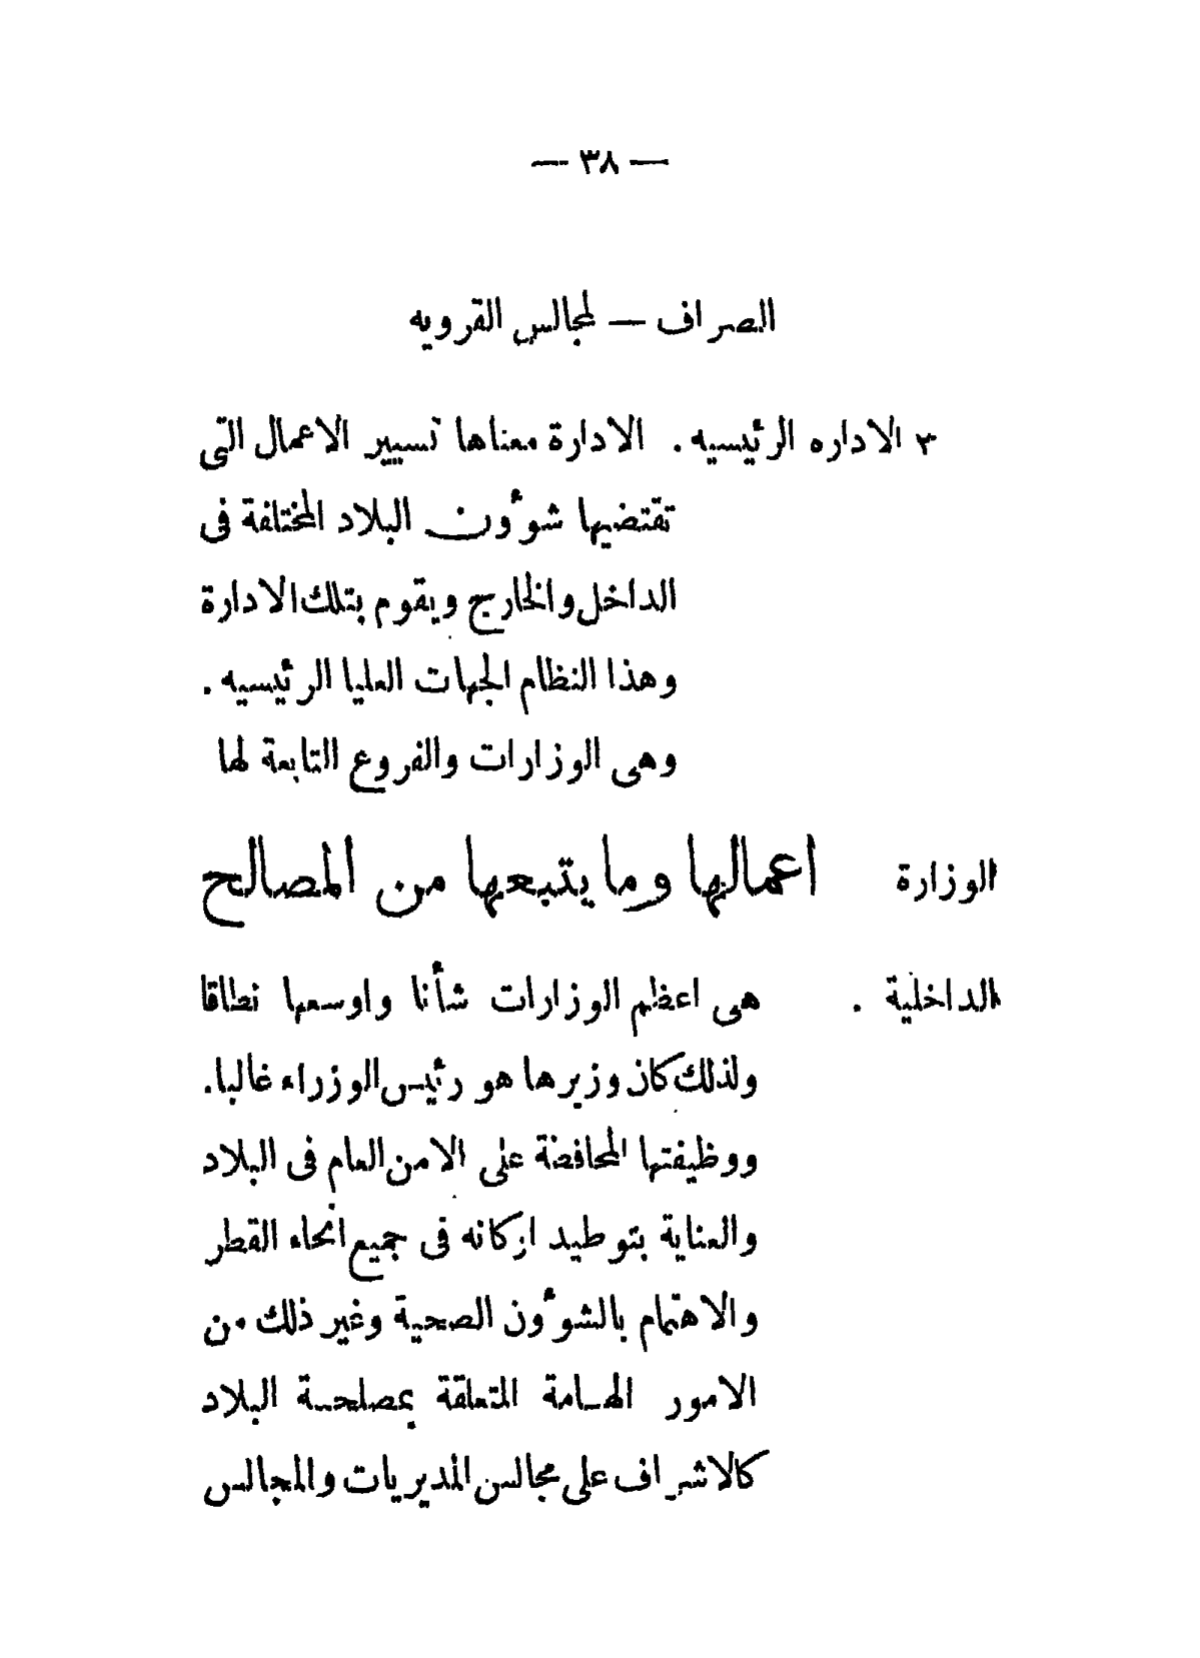 — ٣٨ —
الصراف — لمجالس القرويه
٣ الاداره الرئيسيه . الادارة معناها تسيير الاعمال التى
تقتضيها شوءون البلاد المختلفة فى
الداخل والخارج ويقوم بتلك الادارة
وهذا النظام الجهات العليا الرئيسيه .
وهى الوزارات والفروع التابعة لها
الوزارة اعمالها وما يتبعها من المصالح
الداخلية . هى اعظم الوزارات شأنا واوسعها نطاقا
ولذلك كان وزيرها هو رئيس الوزراء غالبا.
ووظيفتها المحافضة على الامن العام فى البلاد
والعناية بتوطيد اركانه فى جميع انحاء القطر
والاهتمام بالشوءون الصحية وغير ذلك من
الامور الهامة المتعلقة بمصلحة البلاد
كالاشراف على مجالس المديريات والمجالس